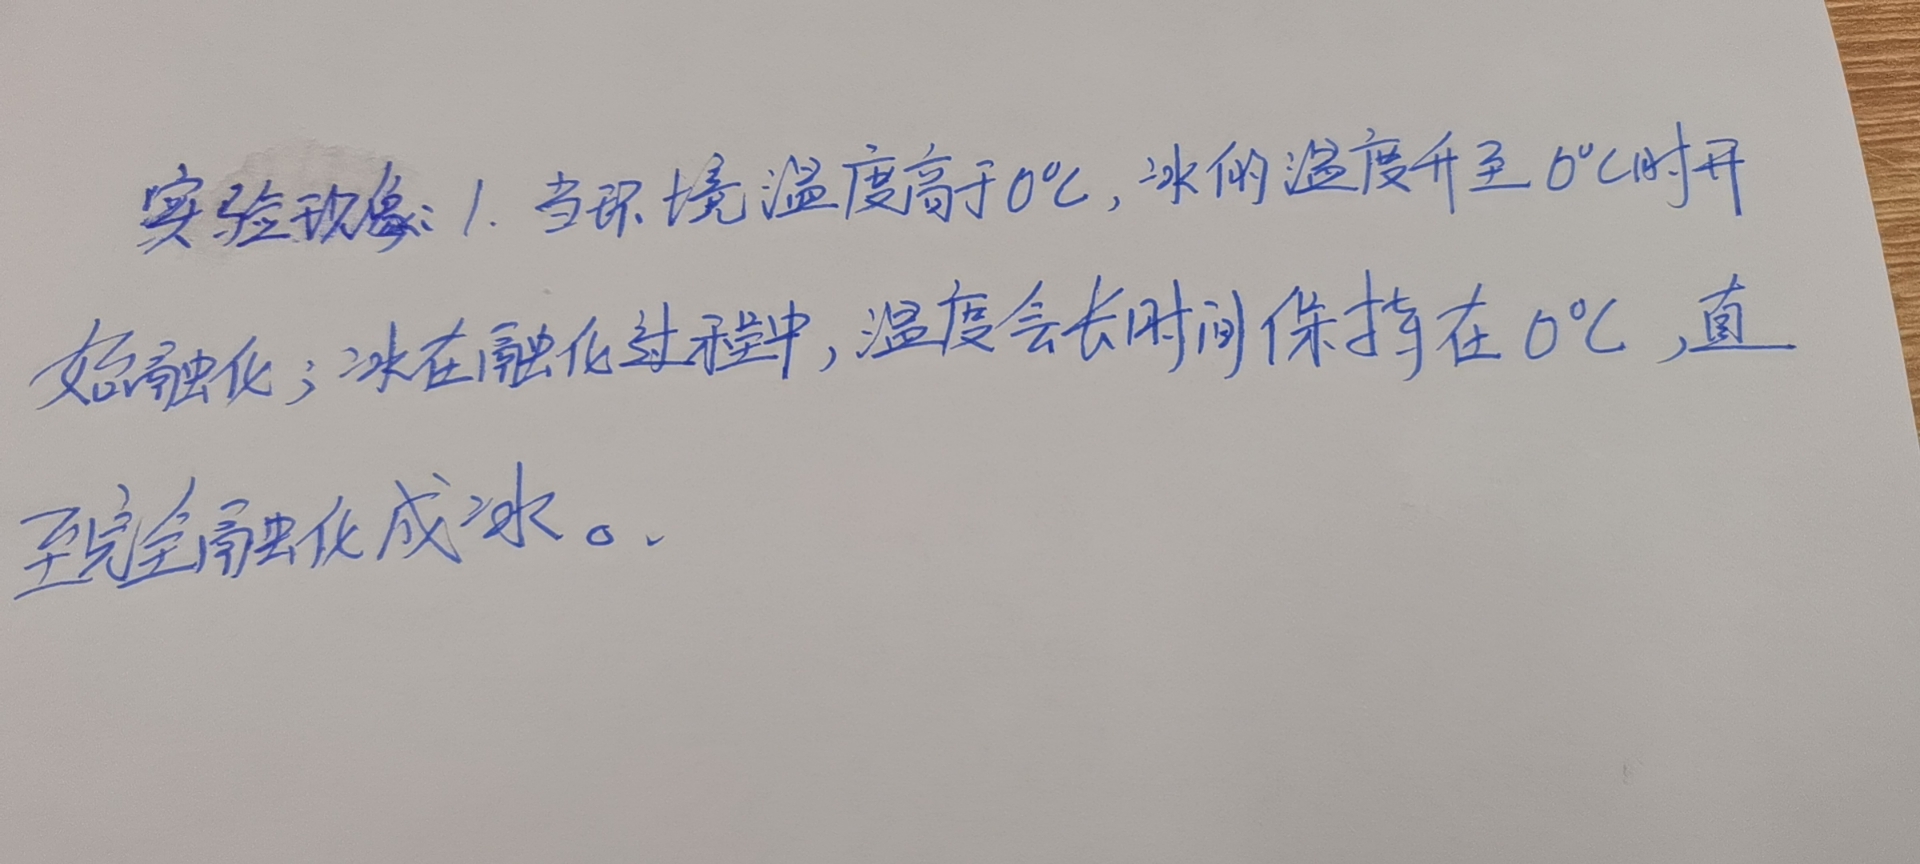 实验现象:1.当环境温度高于0℃,冰的温度升至0℃时开
始融化;冰在融化过程中,温度会长时间保持在0℃,直
至完全融化成冰。.